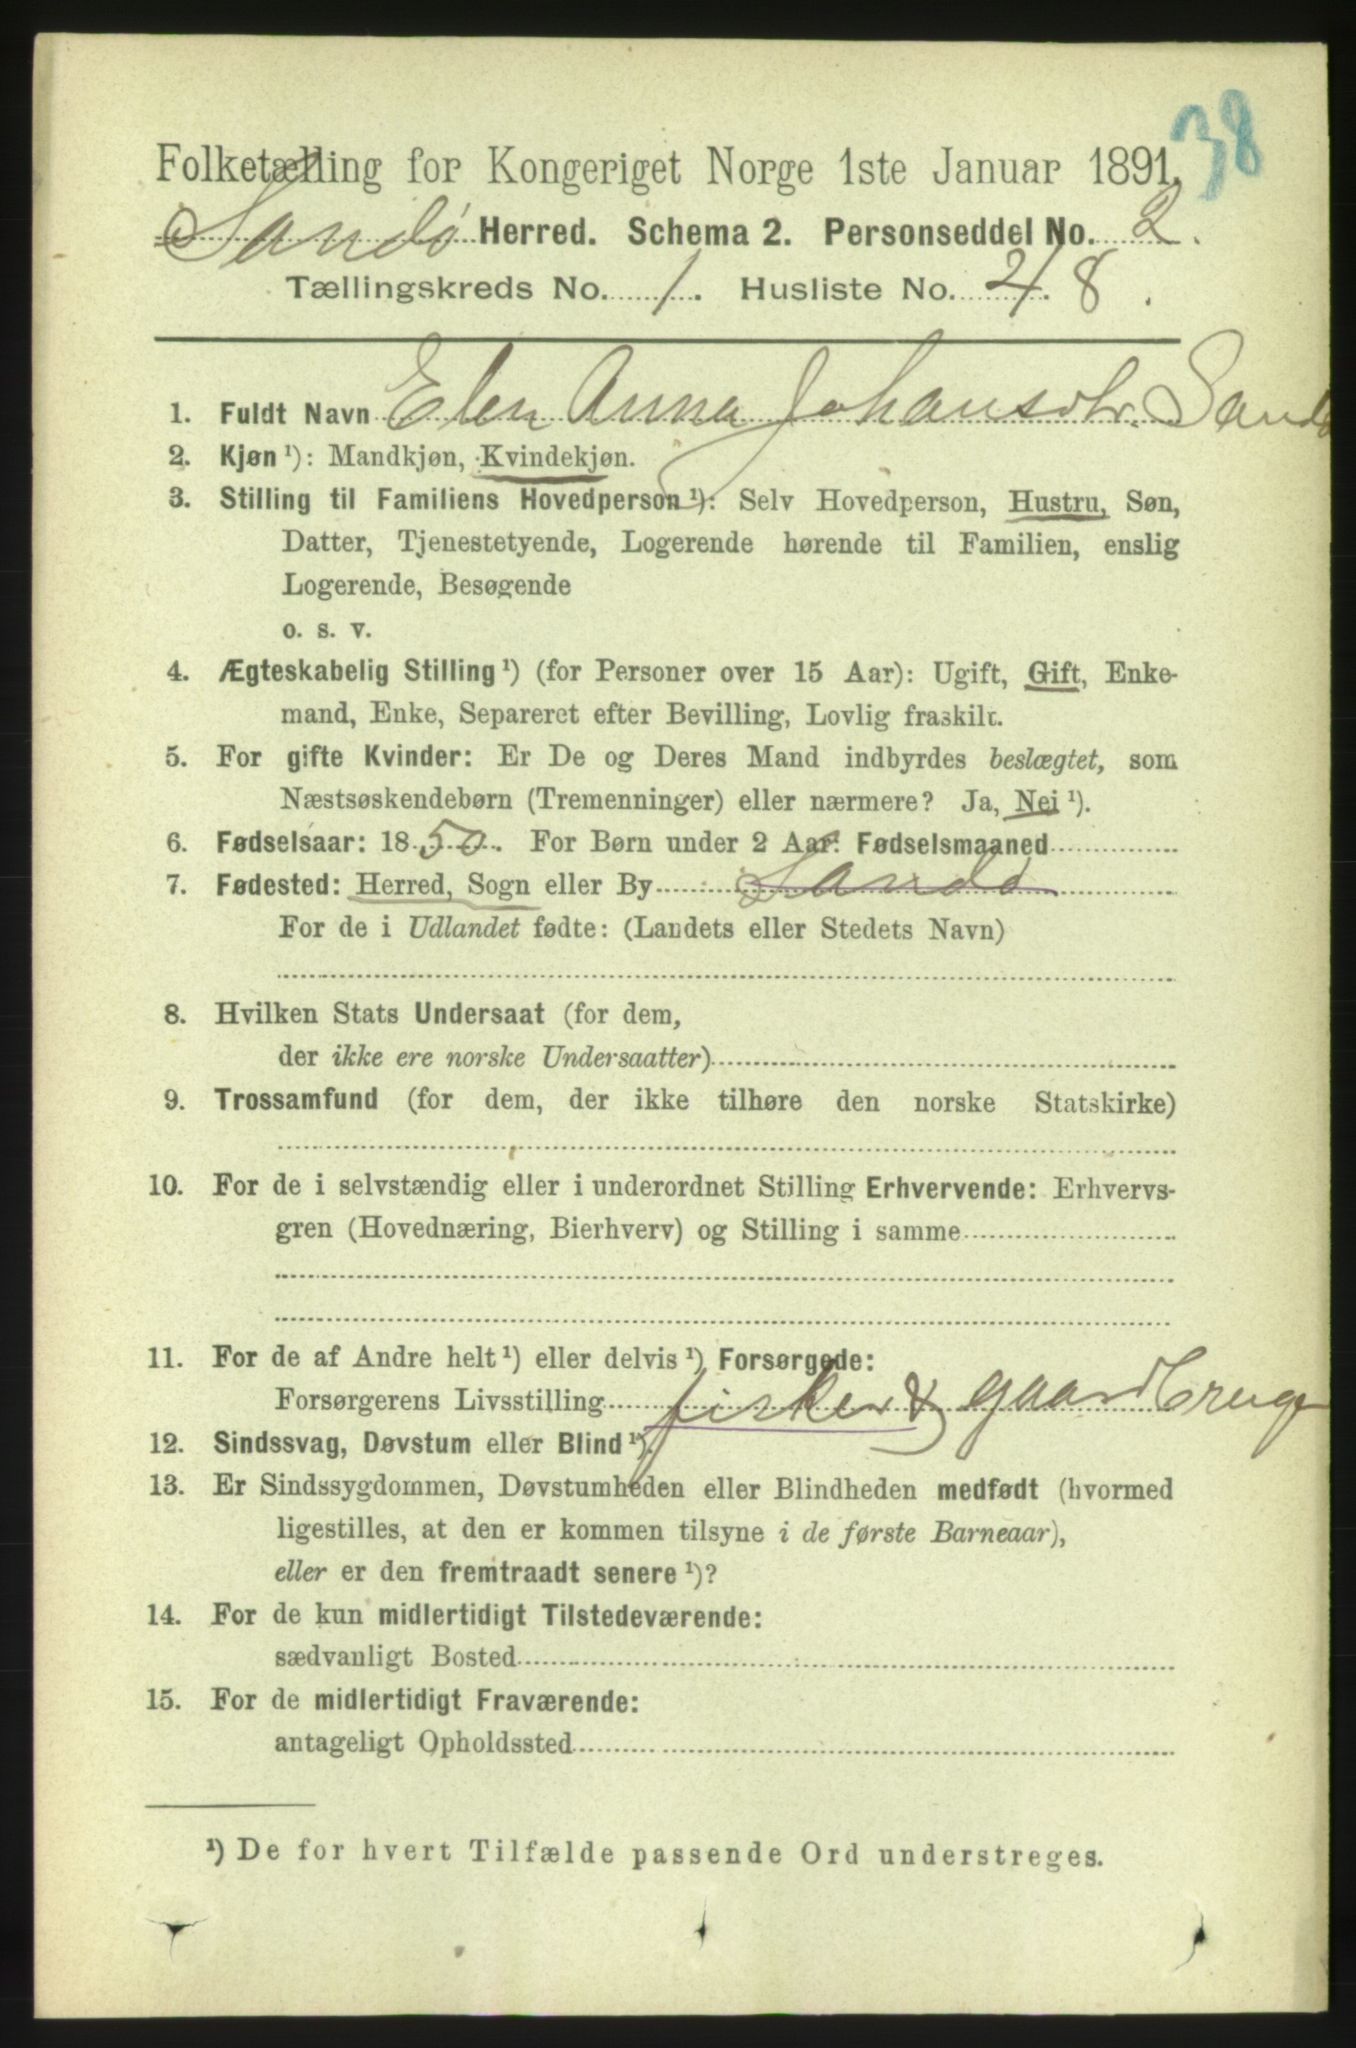 38
Folketælling for Kongeriget Norge 1ste Januar 1891.
Sandø Herred. Schema 2. Personseddel No. 2.
Tællingskreds No. 1. Husliste No. 48.
1. Fuldt Navn Elen Anna Johansdtr. Sandø
2. Kjøn ¹): Mandkjøn, Kvindekjøn.
3. Stilling til Familiens Hovedperson ¹): Selv Hovedperson, Hustru, Søn,
Datter, Tjenestetyende, Logerende hørende til Familien, enslig
Logerende, Besøgende
o. s. v.
4. Ægteskabelig Stilling ¹) (for Personer over 15 Aar): Ugift, Gift, Enke-
mand, Enke, Separeret efter Bevilling, Lovlig fraskilt.
5. For gifte Kvinder: Er De og Deres Mand indbyrdes beslægtet, som
Næstsøskendebørn (Tremenninger) eller nærmere? Ja, Nei ¹).
6. Fødselsaar: 1850. For Børn under 2 Aar: Fødselsmaaned
7. Fødested: Herred, Sogn eller By Sandø
For de i Udlandet fødte: (Landets eller Stedets Navn)
8. Hvilken Stats Undersaat (for dem,
der ikke ere norske Undersaatter)
9. Trossamfund (for dem, der ikke tilhøre den norske Statskirke)
10. For de i selvstændig eller i underordnet Stilling Erhvervende: Erhvervs-
gren (Hovednæring, Bierhverv) og Stilling i samme
11. For de af Andre helt ¹) eller delvis ¹) Forsørgede:
Forsørgerens Livsstilling fisker & gaardbruger
12. Sindssvag, Døvstum eller Blind ¹).
13. Er Sindssygdommen, Døvstumheden eller Blindheden medfødt (hvormed
ligestilles, at den er kommen tilsyne i de første Barneaar),
eller er den fremtraadt senere ¹)?
14. For de kun midlertidigt Tilstedeværende:
sædvanligt Bosted
15. For de midlertidigt Fraværende:
antageligt Opholdssted
¹) De for hvert Tilfælde passende Ord understreges.